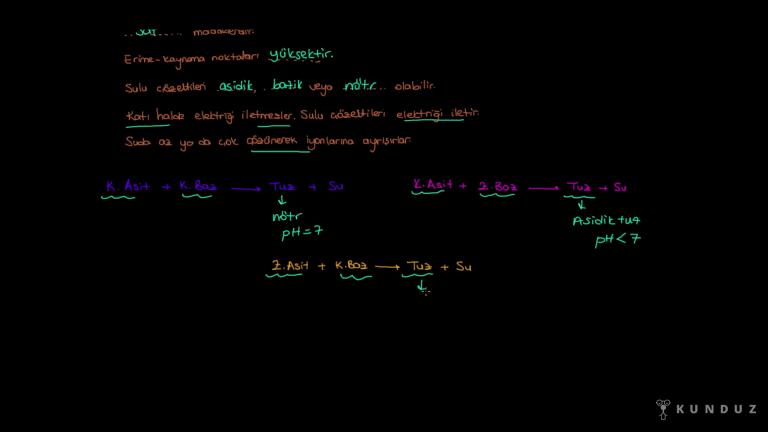 maddelerdir.
Erime-kaynama noktaları yüksektir.
Sulu çözeltileri asidik, bazik veya nötr olabilir.
Katı halde elektriği iletmezler. Sulu çözeltileri elektriği iletir.
Suda az ya da çok çözünerek iyonlarına ayrışırlar.
K.Asit + K.Baz → Tuz + Su
K.Asit + Z.Baz → Tuz + Su
nötr
pH = 7
Asidik tuz
pH < 7
Z.Asit + K.Baz → Tuz + Su
KUNDUZ